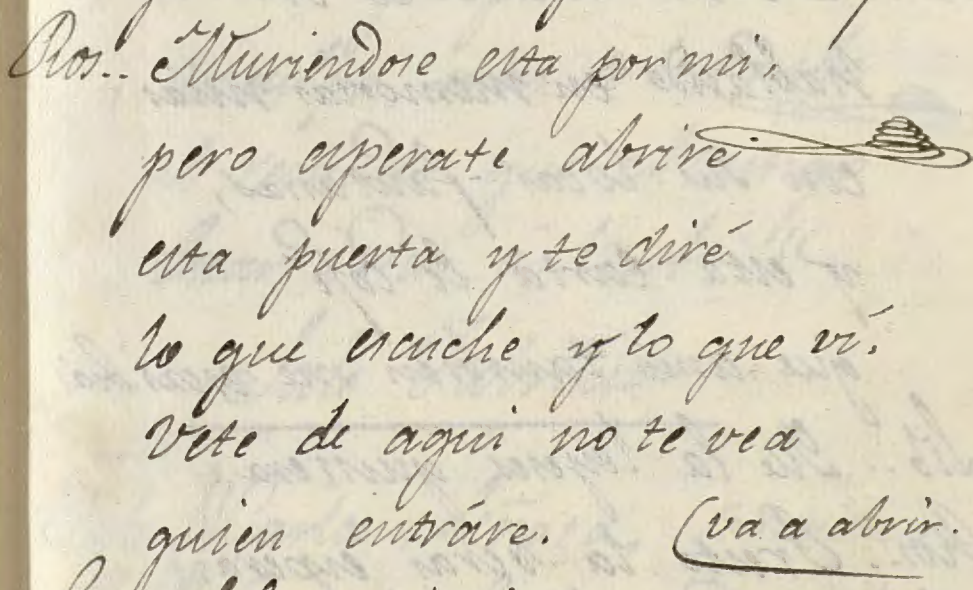 Ros.. Muriendose esta por mi,
pero esperate abriré
esta puerta y te diré
lo que escuche y lo que ví.
vete de aqui no te vea
quien entráre. (va a abrir.